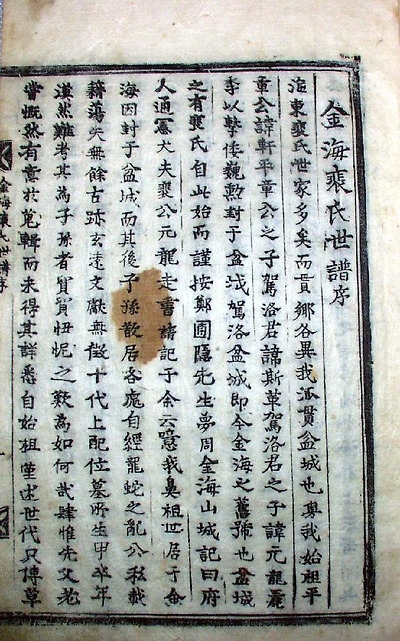 金海裴氏世譜序
海東裴氏世家多矣而貫鄉各異我派貫盆城也粤我始祖平
章公諱軒平章公之子駕洛君諱斯革駕洛君之子諱元龍麗
季以擊倭巍勳封于盆城駕洛盆城即今金海之舊號也盆城
之有裴氏自此始而謹按鄭圃隱先生夢周金海山城記曰府
人通憲大夫裴公元龍走書請記于余云窓我鼻祖世居于金
海因封于盆城而其後子孫散居各處自經龍蛇之亂公私載
籍蕩失無餘古跡玄遠文獻無徵十代上配位墓所生甲卒年
漠然難考其為子孫者貿貿忸怩之歎為如何哉肆惟先父老
嘗慨然有意於蒐輯而未得其詳悉自始祖 世代只傳草
金海裴氏世譜序